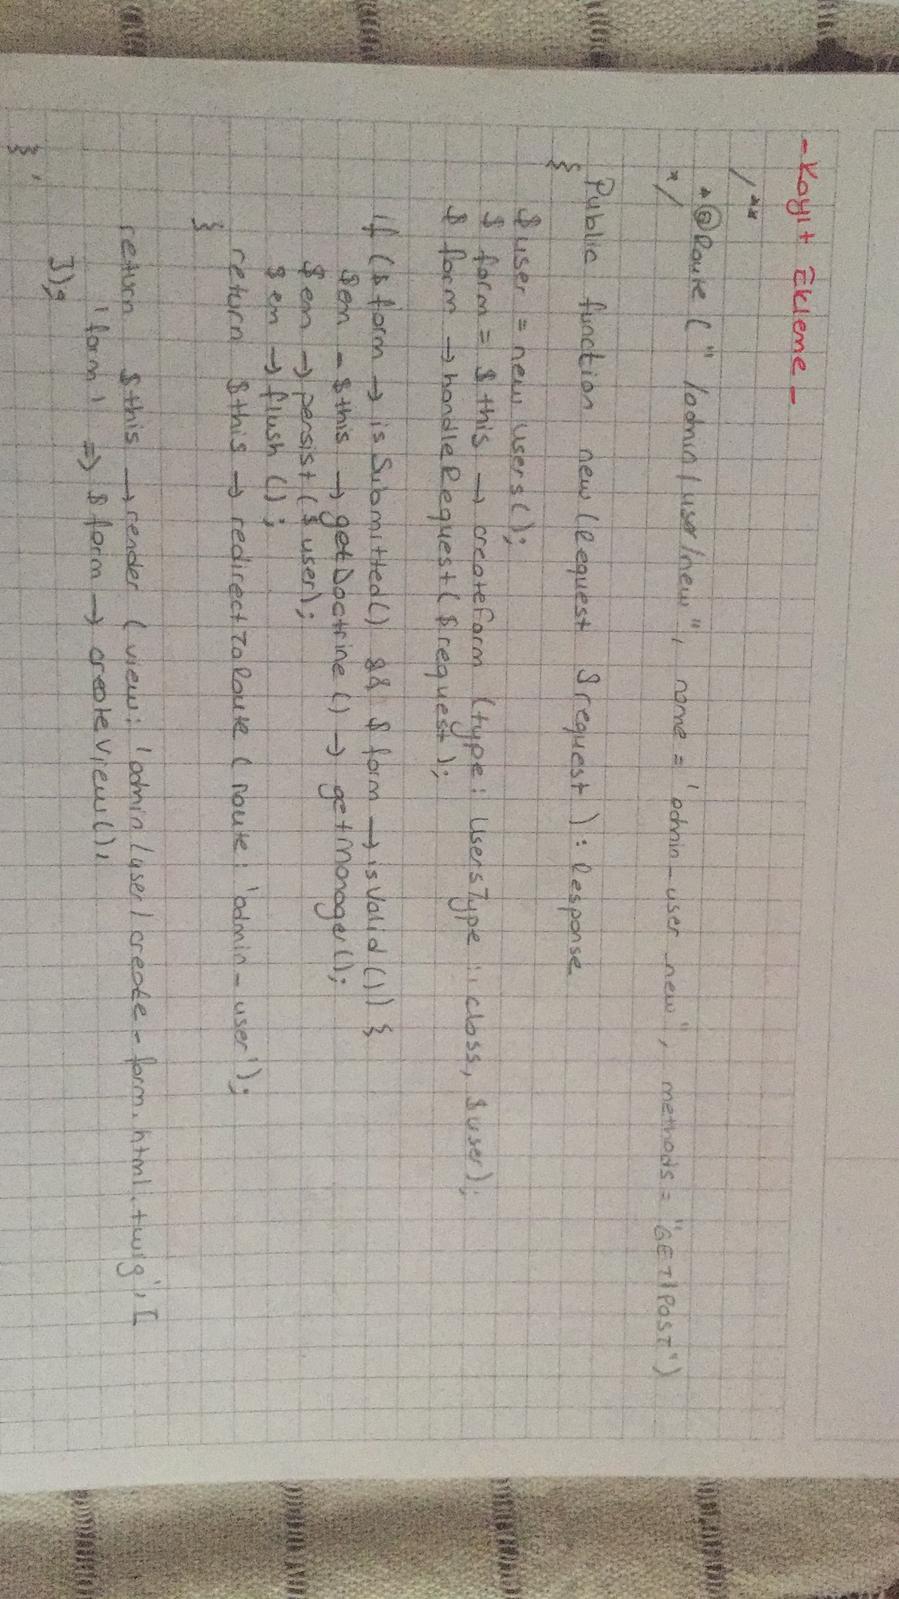 - Kayıt Ekleme -
/**
*@Route ("/admin/user/new", name = 'admin-user_new", methods = "GET|POST")
*/
Public function new (Request $request) : Response
{
$user = new users();
$form = $this → createForm (type: UsersType :: class, $user);
$form → handleRequest ($request);
if ($form → isSubmitted() && $form → isValid()) {
$em = $this → getDoctrine () → getManager();
$em → persist ($user);
$em → flush ();
return $this → redirectToRoute (route: 'admin-user');
}
return $this → render (view: 'admin/user/create-form.html.twig', [
'form' => $form → createView(),
]);
},